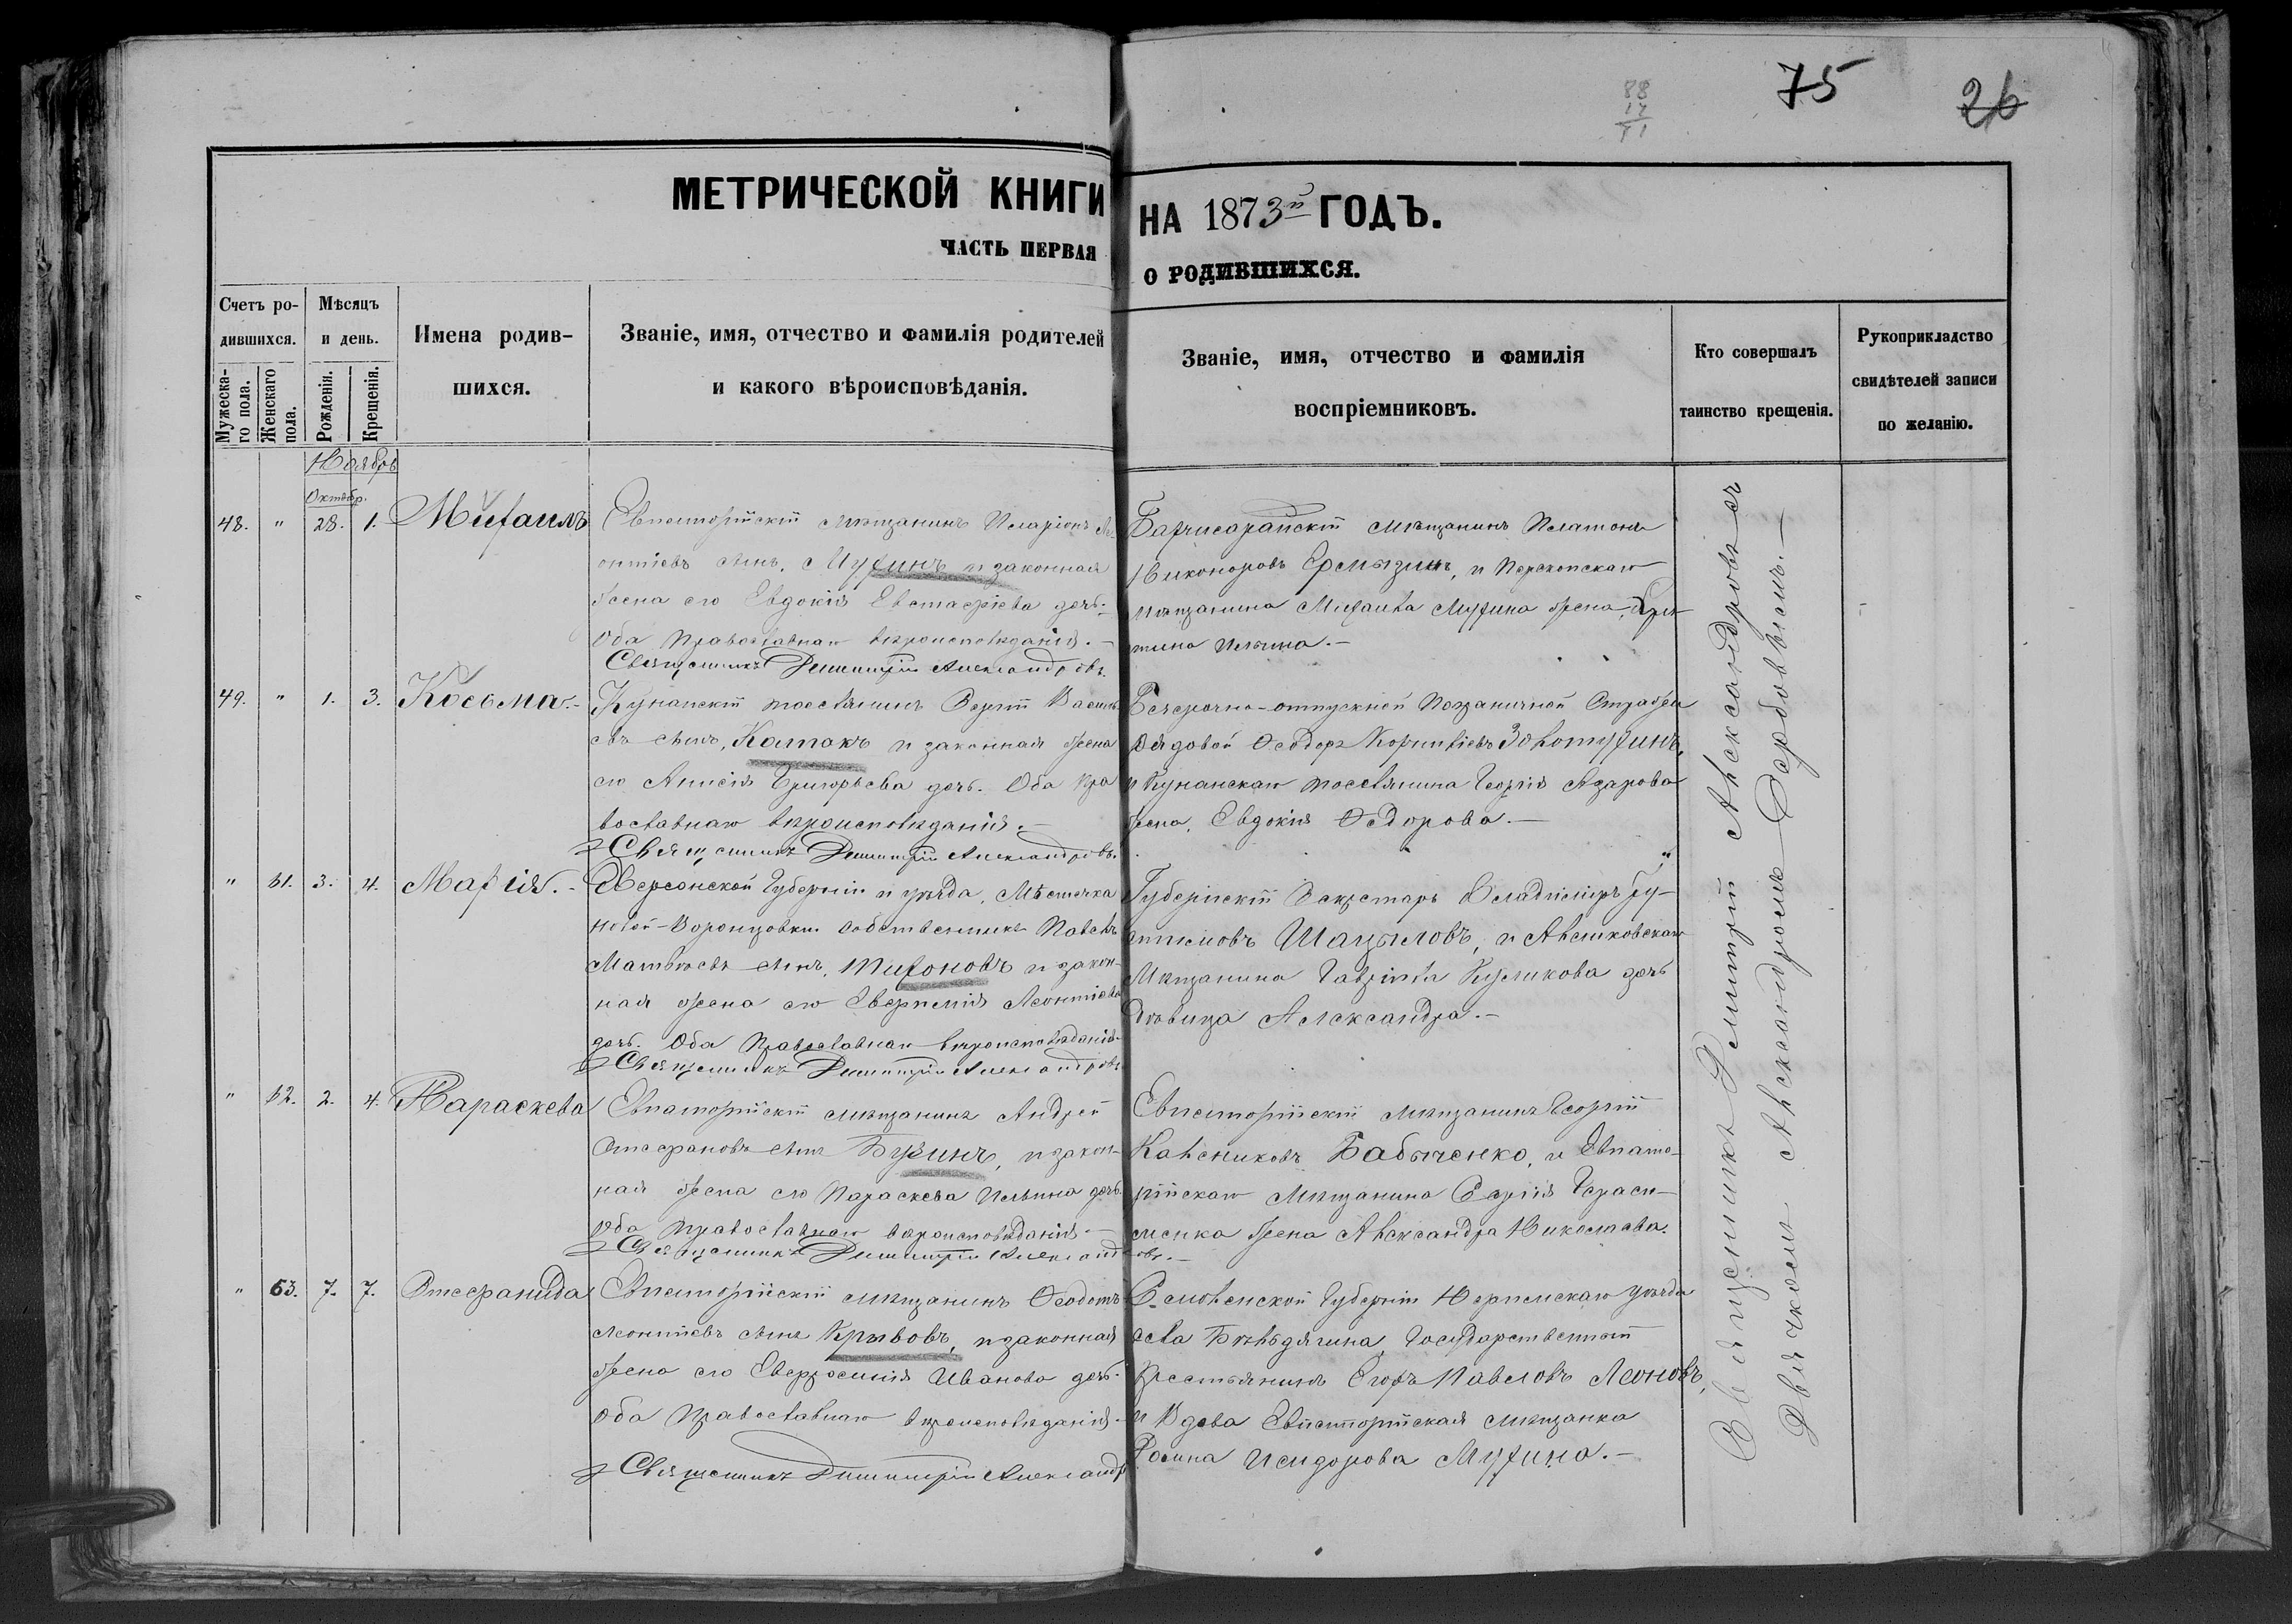 88
17
71
75
26
МЕТРИЧЕСКОЙ КНИГИ НА 1873й ГОДЪ.
ЧАСТЬ ПЕРВАЯ О РОДИВШИХСЯ.
Счетъ ро-
дившихся.
Мужеска-
го пола.
Женскаго
пола.
Мѣсяцъ
и день.
Рожденія.
Крещенія.
Имена родив-
шихся.
Званіе, имя, отчество и фамилія родителей
и какого вѣроисповѣданія.
Званіе, имя, отчество и фамилія
воспріемниковъ.
Кто совершалъ
таинство крещенія.
Рукоприкладство
свидѣтелей записи
по желанію.
Ноябрь
Октябр.
48. " 28. 1. Михаилъ
Евпаторійскій мѣщанинъ Иларіонъ Ле-
онтіевъ сынъ, Мухинъ и законная
жена его Евдокія Евстафіева дочь.
Оба православнаго вѣроисповѣданія.—
Священникъ Димитрій Александровъ.
Бахчисарайскій мѣщанинъ Платонъ
Никоноровъ Ермызинъ, и Перекопскаго
мѣщанина Михаила Мухина жена,
Ильина.—
49. " 1. 3. Косьма.—
Кунанскій поселянинъ Сергій Василь-
евъ сынъ, Каталъ и законная жена
его Анисія Григорьева дочь. Оба пра
вославнаго вѣроисповѣданія.—
Священникъ Димитрій Александровъ.
Безсрочно-отпускной Пограничной Стражи
Рядовой Ѳеодоръ Золотухинъ,
и Кунанскаго поселянина Георгія Азарова
жена, Евдокія Ѳедорова.—
" 51. 3. 4. Марія.—
Херсонской Губерніи и уѣзда, Мѣстечка
Новой-Воронцовки собственникъ Павелъ
Матвѣевъ сынъ, Тихоновъ и закон-
ная жена его Евфимія Леонтіева
дочь. Оба Православнаго вѣроисповѣданія.
Священникъ Димитрій Александровъ
Губернскій Секретарь Владиміръ
Шацыловъ, и Алешковскаго
Мѣщанина Гавріила Куликова дочь
дѣвица Александра.—
" 52. 2. 4. Параскева
Евпаторійскій мѣщанинъ Андрей
Стефановъ сынъ Бузинъ, и закон-
ная жена его Параскева Ильина дочь.
Оба православнаго вѣроисповѣданія.—
Священникъ Димитрій Александровъ.—
Евпаторійскій мѣщанинъ Георгій
Калениковъ Бабыченко, и Евпато-
рійскаго Мѣщанина Сергія Гераси-
менка жена Александра Николаева.
" 53. 7. 7. Стефанида
Евпаторійскій мѣщанинъ Ѳеодотъ
Леонтіевъ сынъ Крывовъ, и законная
жена его Евфросинія Иванова дочь.
Оба Православнаго вѣроисповѣданія.
Священникъ Димитрій Александр
Смоленской Губерніи уѣзда
села Государственный
Крестьянинъ Егоръ Павловъ Леоновъ,
и Вдова Евпаторійская мѣщанка
Исидорова Мухина.—
Священникъ Димитрій Александровъ съ
Дьячкомъ Александромъ Сербовымъ.—